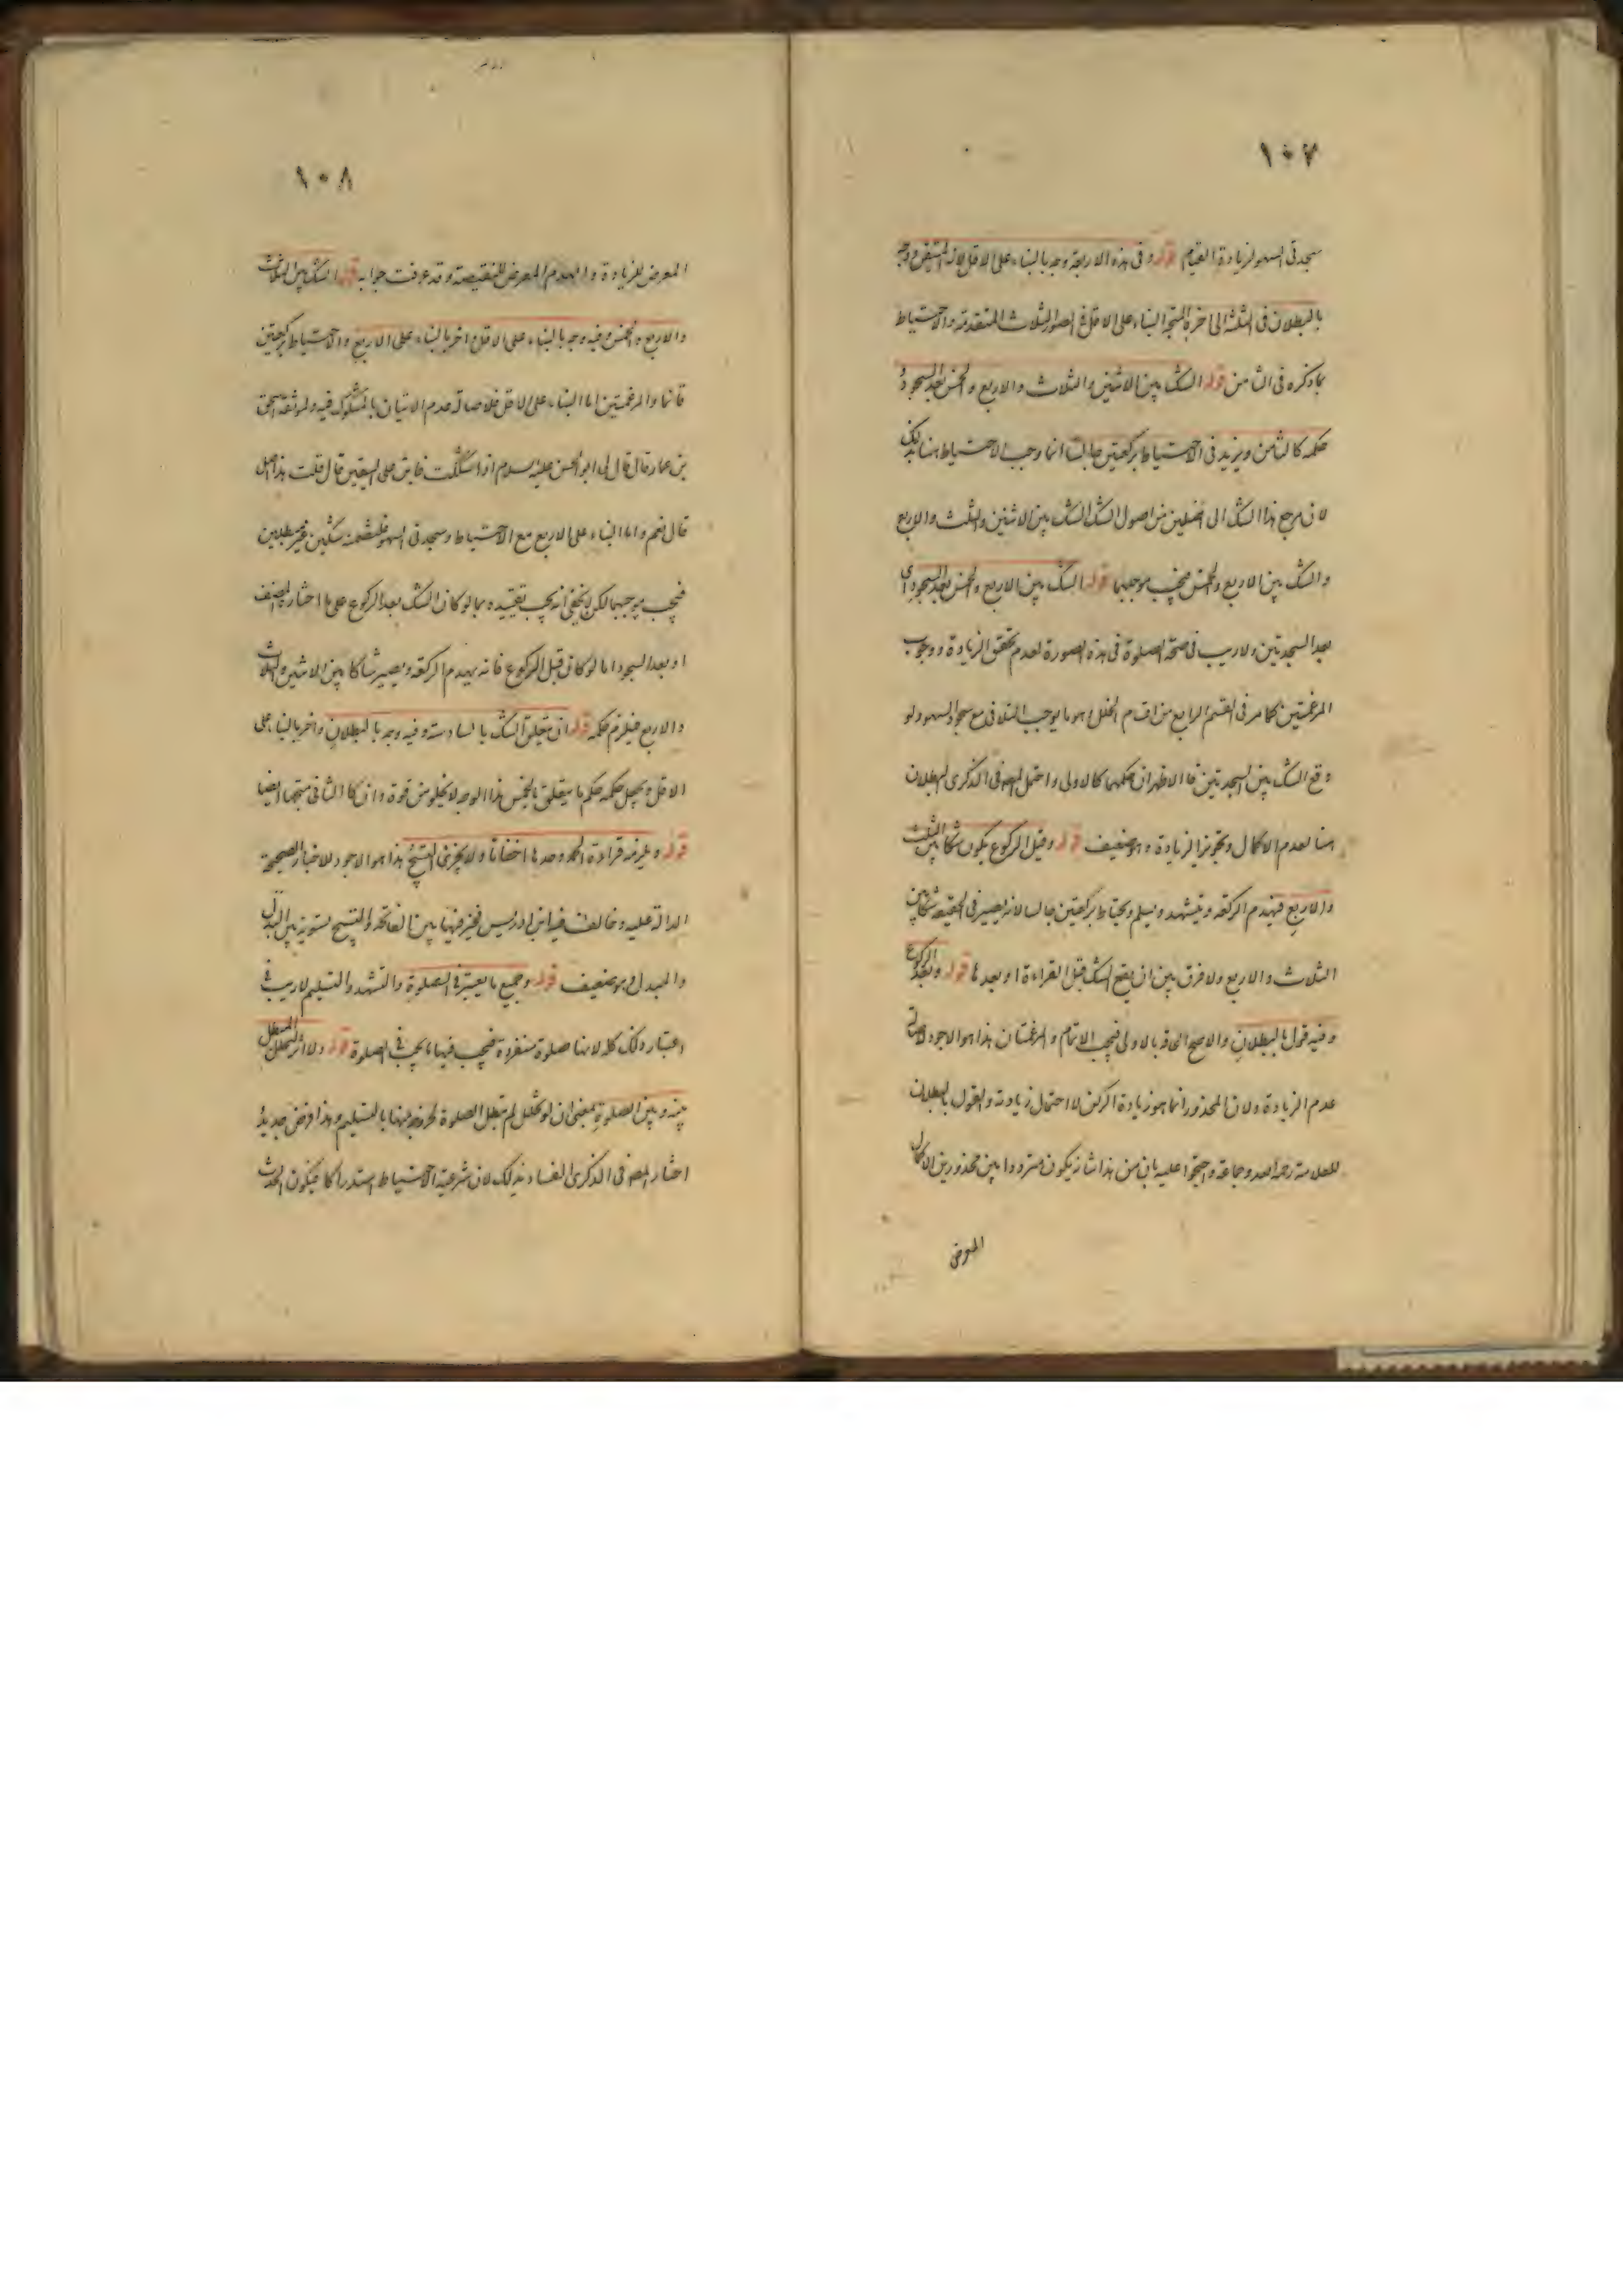 ١٠٧
سجدتي السهو لزيادة القيام قوله وفي هذه الاربعة وجه بالبناء على الاقل لانه المتيقن ووجه
بالبطلان في الثلثة الى اخره المتجه البناء على الاقل في الصور الثلاث المتقدمة والاحتياط
بما ذكره في الثامن قوله الشك بين الاثنين والثلاث والاربع والخمس بعد السجود
حكمه كالثامن ويزيد في الاحتياط بركعتين جالسا انما وجب الاحتياط هنا بذلك
لان مرجع هذا الشك الى اصلين من اصول الشك الشك بين الاثنين والثلث والاربع
والشك بين الاربع والخمس فيجب موجبهما قوله الشك بين الاربع والخمس بعد السجود اي
بعد السجدتين ولا ريب في صحة الصلوة في هذه الصورة لعدم تحقق الزيادة ووجوب
المرغمتين كما مر في القسم الرابع من اقسام الخلل وهو ما يوجب التلافي مع سجود السهو ولو
وقع الشك بين السجدتين فالاظهر ان حكمهما كالاولى واحتمل المصه في الذكرى البطلان
هنا لعدم الاكمال وتجويز الزيادة وهو ضعيف قوله وقبل الركوع يكون شكا بين الثلث
والاربع فيهدم الركعة ويتشهد ويسلم ويحتاط بركعتين جالسا لانه يصير في الحقيقة شكا بين
الثلاث والاربع ولا فرق بين ان يقع الشك قبل القراءة او بعدها قوله وبعد الركوع
وفيه قول بالبطلان والاصح الحاقه بالاولى فيجب الاتمام والمرغمتان هذا هو الاجود لاصالة
عدم الزيادة ولان المحذور انما هو زيادة الركن لا احتمال زيادته والقول بالبطلان
للعلامة رحمه الله وجماعة واحتجوا عليه بان من هذا شانه يكون مترددا بين محذورين الاكمال
المعرض
١٠٨
المعرض للزيادة والهدم المعرض للنقيصة وقد عرفت جوابه قوله الشك بين الثلاث
والاربع والخمس وفيه وجه بالبناء على الاقل واخر بالبناء على الاربع والاحتياط بركعتين
قائما والمرغمتين اما البناء على الاقل فلاصالة عدم الاتيان بالمشكوك فيه ولموثقة اسحق
بن عمار قال قال لي ابو الحسن عليه السلام اذا شككت فابن على اليقين قال قلت هذا اصل
قال نعم واما البناء على الاربع مع الاحتياط وسجدتي السهو فلتضمنه شكين غير مبطلين
فيجب موجبهما لكن لا يخفى انه يجب تقييده بما لو كان الشك بعد الركوع على ما اختاره المصنف
او بعد السجود اما لو كان قبل الركوع فانه يهدم الركعة ويصير شاكا بين الاثنين والثلاث
والاربع فيلزم حكمه قوله ان تعلق الشك بالسادسة وفيه وجه بالبطلان واخر بالبناء على
الاقل ويجعل حكمه حكم ما يتعلق بالخمس هذا الوجه لا يخلو من قوة وان كان الثاني متجها ايضا
قوله ويلزمه قراءة الحمد وحدها اخفاتا ولا يجزئ التسبيح هذا هو الاجود للاخبار الصحيحة
الدالة عليه وخالف فيه ابن ادريس فخير فيها بين الفاتحة والتسبيح تسوية بين البدل
والمبدل وهو ضعيف قوله وجميع ما يعتبر في الصلوة والتشهد والتسليم لا ريب في
اعتبار ذلك كله لانها صلوة منفردة فيجب فيها ما يجب في الصلوة قوله ولا اثر لتخلل المبطل
بينه وبين الصلوة بمعنى ان لو تخلل لم تبطل الصلوة لخروجه منها بالتسليم وهذا فرض جديد
اختار المصه في الذكرى الفساد بذلك لان شرعية الاحتياط استدراكا فيكون الحدث